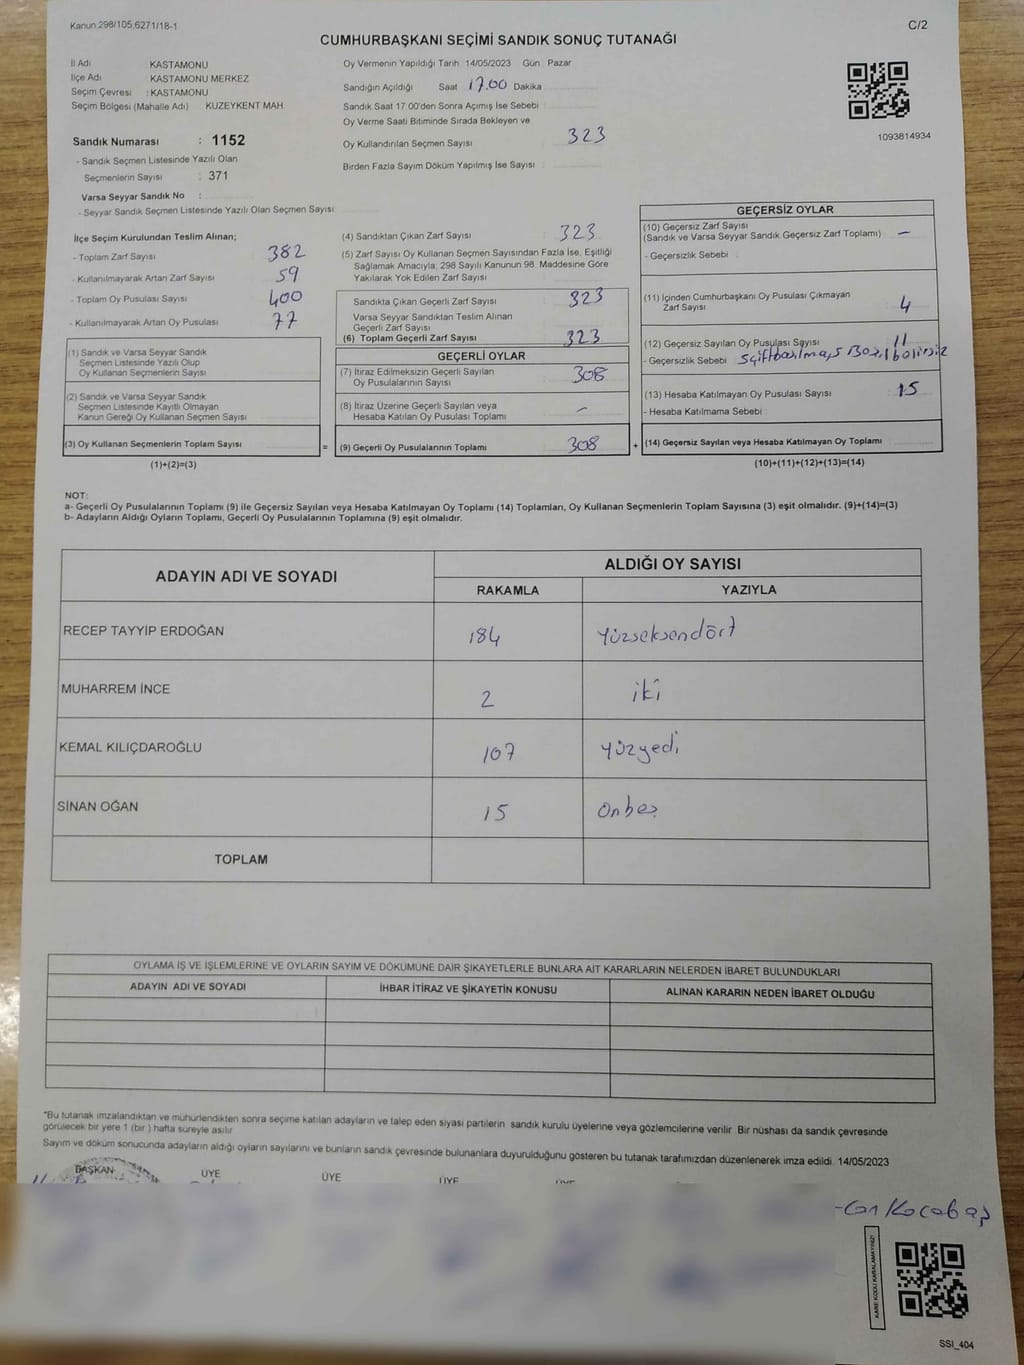 Kanun:298/105,6271/18-1
C/2
CUMHURBAŞKANI SEÇİMİ SANDIK SONUÇ TUTANAĞI
İl Adı KASTAMONU
İlçe Adı KASTAMONU MERKEZ
Seçim Çevresi : KASTAMONU
Seçim Bölgesi (Mahalle Adı) KUZEYKENT MAH
Sandık Numarası : 1152
- Sandık Seçmen Listesinde Yazılı Olan
Seçmenlerin Sayısı : 371
Varsa Seyyar Sandık No :
- Seyyar Sandık Seçmen Listesinde Yazılı Olan Seçmen Sayısı:
Oy Vermenin Yapıldığı Tarih 14/05/2023 Gün : Pazar
Sandığın Açıldığı Saat 17.00 Dakika
Sandık Saat 17 00'den Sonra Açımış İse Sebebi
Oy Verme Saati Bitiminde Sırada Bekleyen ve
Oy Kullandırılan Seçmen Sayısı 323
Birden Fazla Sayım Döküm Yapılmış İse Sayısı
1093814934
İlçe Seçim Kurulundan Teslim Alınan;
- Toplam Zarf Sayısı 382
- Kullanılmayarak Artan Zarf Sayısı 59
- Toplam Oy Pusulası Sayısı 400
- Kullanılmayarak Artan Oy Pusulası 77
(1) Sandık ve Varsa Seyyar Sandık
Seçmen Listesinde Yazılı Olup
Oy Kullanan Seçmenlerin Sayısı
(2) Sandık ve Varsa Seyyar Sandık
Seçmen Listesinde Kayıtlı Olmayan
Kanun Gereği Oy Kullanan Seçmen Sayısı
(3) Oy Kullanan Seçmenlerin Toplam Sayısı
(1)+(2)=(3)
(4) Sandıktan Çıkan Zarf Sayısı 323
(5) Zarf Sayısı Oy Kullanan Seçmen Sayısından Fazla İse, Eşitliği
Sağlamak Amacıyla, 298 Sayılı Kanunun 98. Maddesine Göre
Yakılarak Yok Edilen Zarf Sayısı
Sandıkta Çıkan Geçerli Zarf Sayısı 323
Varsa Seyyar Sandıktan Teslim Alınan
Geçerli Zarf Sayısı
(6) Toplam Geçerli Zarf Sayısı 323
GEÇERLİ OYLAR
(7) İtiraz Edilmeksizin Geçerli Sayılan
Oy Pusulalarının Sayısı 308
(8) İtiraz Üzerine Geçerli Sayılan veya
Hesaba Katılan Oy Pusulası Toplamı -
= (9) Geçerli Oy Pusulalarının Toplamı 308 +
GEÇERSİZ OYLAR
(10) Geçersiz Zarf Sayısı
(Sandık ve Varsa Seyyar Sandık Geçersiz Zarf Toplamı) -
- Geçersizlik Sebebi :
(11) İçinden Cumhurbaşkanı Oy Pusulası Çıkmayan
Zarf Sayısı 4
(12) Geçersiz Sayılan Oy Pusulası Sayısı 11
- Geçersizlik Sebebi
(13) Hesaba Katılmayan Oy Pusulası Sayısı 15
- Hesaba Katılmama Sebebi
(14) Geçersiz Sayılan veya Hesaba Katılmayan Oy Toplamı
(10)+(11)+(12)+(13)=(14)
NOT:
a- Geçerli Oy Pusulalarının Toplamı (9) ile Geçersiz Sayılan veya Hesaba Katılmayan Oy Toplamı (14) Toplamları, Oy Kullanan Seçmenlerin Toplam Sayısına (3) eşit olmalıdır. (9)+(14)=(3)
b- Adayların Aldığı Oyların Toplamı, Geçerli Oy Pusulalarının Toplamına (9) eşit olmalıdır.
ADAYIN ADI VE SOYADI
ALDIĞI OY SAYISI
RAKAMLA YAZIYLA
RECEP TAYYİP ERDOĞAN 184 yüzseksendört
MUHARREM İNCE 2 iki
KEMAL KILIÇDAROĞLU 107 yüzyedi
SİNAN OĞAN 15 onbeş
TOPLAM
OYLAMA İŞ VE İŞLEMLERİNE VE OYLARIN SAYIM VE DÖKÜMÜNE DAİR ŞİKAYETLERLE BUNLARA AİT KARARLARIN NELERDEN İBARET BULUNDUKLARI
ADAYIN ADI VE SOYADI İHBAR İTİRAZ VE ŞİKAYETİN KONUSU ALINAN KARARIN NEDEN İBARET OLDUĞU
*Bu tutanak imzalandıktan ve mühürlendikten sonra seçime katılan adayların ve talep eden siyasi partilerin sandık kurulu üyelerine veya gözlemcilerine verilir. Bir nüshası da sandık çevresinde
görülecek bir yere 1 (bir ) hafta süreyle asılır
Sayım ve döküm sonucunda adayların aldığı oyların sayılarını ve bunların sandık çevresinde bulunanlara duyurulduğunu gösteren bu tutanak tarafımızdan düzenlenerek imza edildi. 14/05/2023
BAŞKAN ÜYE ÜYE ÜYE ÜYE
Kocabaş
KARE KODU KARALAMAYINIZ!
SSI_404